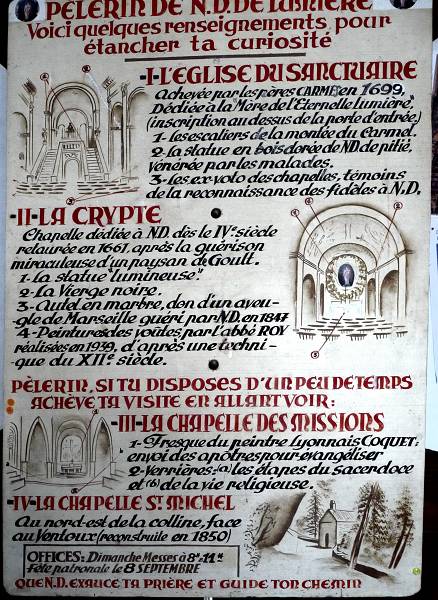 PÈLERIN DE N.D. DE LUMIÈRE
Voici quelques renseignements pour
étancher ta curiosité
-I-L'EGLISE DU SANCTUAIRE
Achevée par les pères CARMES en 1699,
Dédiée à la "Mère de l'Eternelle lumière"
(inscription au dessus de la porte d'entrée.)
1-les escaliers de la montée du Carmel.
2-la statue en bois dorée de N.D. de pitié,
vénérée par les malades.
3-les ex-voto des chapelles, témoins
de la reconnaissance des fidèles à N.D.
-II-LA CRYPTE
Chapelle dédiée à N.D. dès le IVe siècle
restaurée en 1661, après la guérison
miraculeuse d'un paysan de Goult.
1-La statue "lumineuse".
2-La Vierge noire.
3-Autel en marbre, don d'un aveu-
gle de Marseille guéri par N.D. en 1847
4-Peintures des voûtes, par l'abbé ROY
réalisées en 1939, d'après une techni-
que du XIIe siècle.
PÈLERIN, SI TU DISPOSES D'UN PEU DE TEMPS
ACHÈVE TA VISITE EN ALLANT VOIR:
-III-LA CHAPELLE DES MISSIONS
1-Fresque du peintre Lyonnais COQUET:
envoi des apôtres pour évangéliser
2-Verrières: (a) les étapes du sacerdoce
et (b) de la vie religieuse.
-IV-LA CHAPELLE St MICHEL
Au nord-est de la colline, face
au Ventoux (reconstruite en 1850)
OFFICES: Dimanche Messes à 8h-11h
Fête patronale le 8 SEPTEMBRE
QUE N.D. EXAUCE TA PRIÈRE ET GUIDE TON CHEMIN